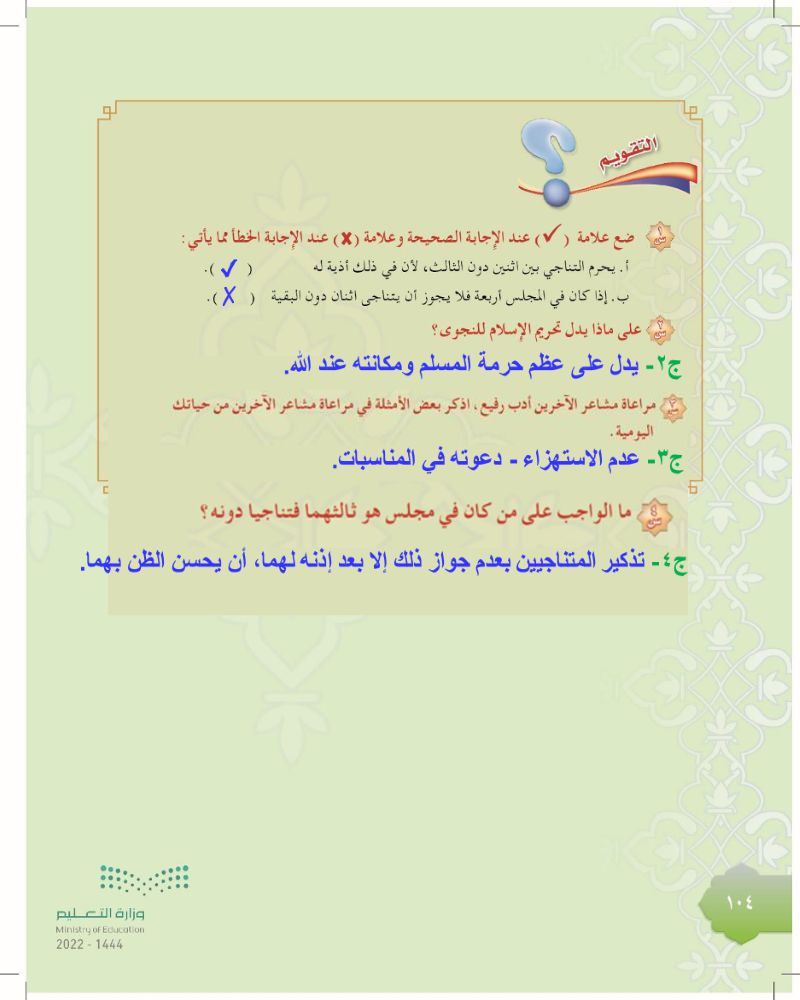 التقويم
س١ ضع علامة (✓) عند الإجابة الصحيحة وعلامة (✗) عند الإجابة الخطأ مما يأتي:
أ. يحرم التناجي بين اثنين دون الثالث، لأن في ذلك أذية له ( ✓ ).
ب. إذا كان في المجلس أربعة فلا يجوز أن يتناجى اثنان دون البقية ( ✗ ).
س٢ على ماذا يدل تحريم الإسلام للنجوى؟
ج٢- يدل على عظم حرمة المسلم ومكانته عند الله.
س٣ مراعاة مشاعر الآخرين أدب رفيع، اذكر بعض الأمثلة في مراعاة مشاعر الآخرين من حياتك
اليومية.
ج٣- عدم الاستهزاء - دعوته في المناسبات.
س٤ ما الواجب على من كان في مجلس هو ثالثهما فتناجيا دونه؟
ج٤- تذكير المتناجيين بعدم جواز ذلك إلا بعد إذنه لهما، أن يحسن الظن بهما.
١٠٤
وزارة التعليم
Ministry of Education
2022 - 1444